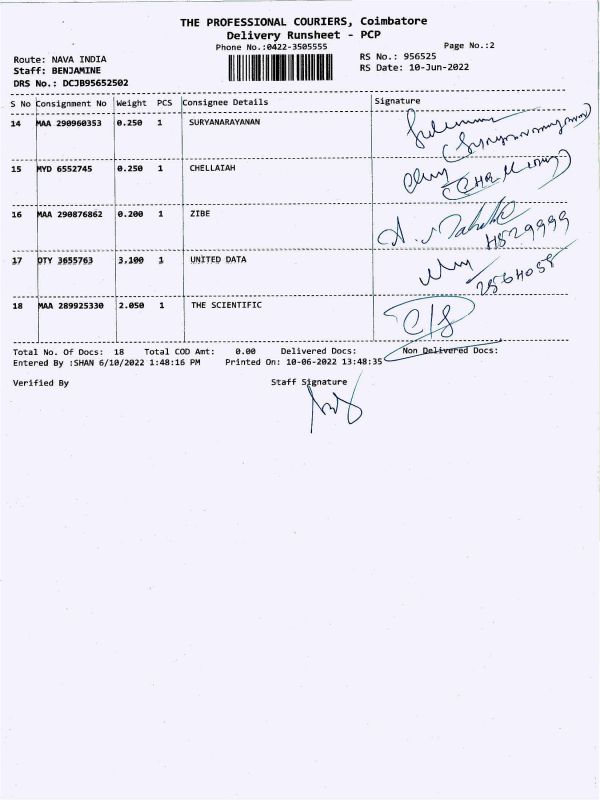 THE PROFESSIONAL COURIERS, Coimbatore
Delivery Runsheet - PCP
Phone No.:0422-3505555
Page No.:2
Route: NAVA INDIA
RS No.: 956525
Staff: BENJAMINE
RS Date: 10-Jun-2022
DRS No.: DCJB95652502
S No Consignment No Weight PCS Consignee Details Signature
14 MAA 290960353 0.250 1 SURYANARAYANAN
15 MYD 6552745 0.250 1 CHELLAIAH
16 MAA 290876862 0.200 1 ZIBE
17 DTY 3655763 3.100 1 UNITED DATA
18 MAA 289925330 2.050 1 THE SCIENTIFIC C/S
Total No. Of Docs: 18 Total COD Amt: 0.00 Delivered Docs: Non Delivered Docs:
Entered By :SHAN 6/10/2022 1:48:16 PM Printed On: 10-06-2022 13:48:35
Verified By Staff Signature